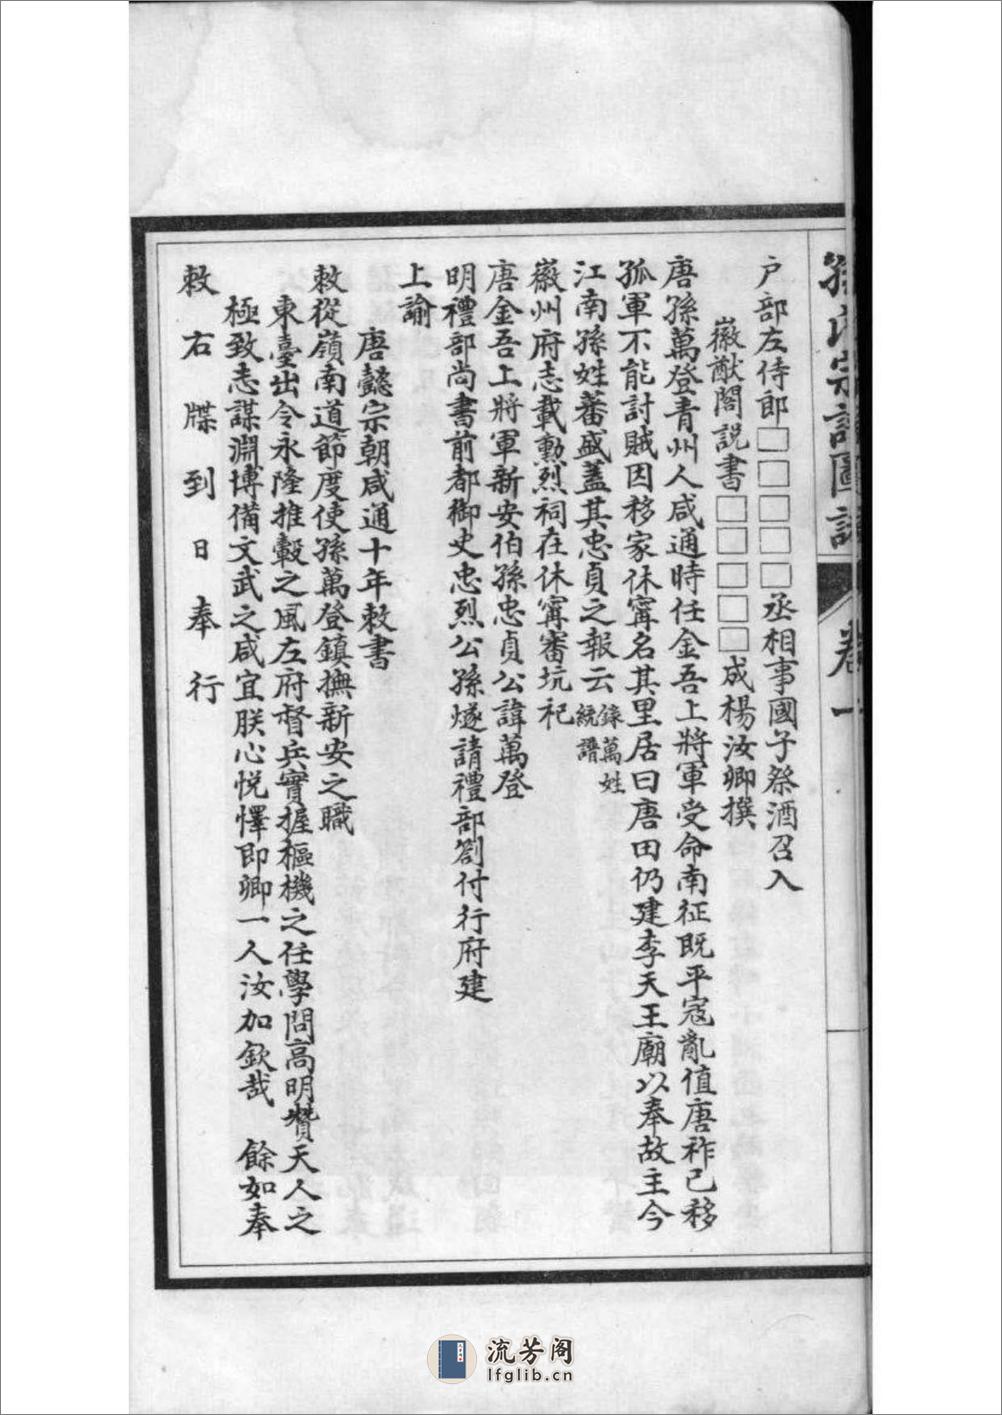 孫氏宗譜圖說 卷一
户部左侍郎□□□□□丞相事國子祭酒召入
徽猷閣説書□□□□□成楊汝卿撰
唐孫萬登青州人咸通時任金吾上將軍受命南征既平寇亂值唐祚已移
孤軍不能討賊因移家休甯名其里居曰唐田仍建李天王廟以奉故主今
江南孫姓蕃盛蓋其忠貞之報云錄萬姓統譜
徽州府志載勲烈祠在休甯審坑祀
唐金吾上將軍新安伯孫忠貞公諱萬登
明禮部尚書前都御史忠烈公孫燧請禮部劄付行府建
上諭
唐懿宗朝咸通十年敕書
敕從嶺南道節度使孫萬登鎮撫新安之職
東臺出令永隆推轂之風左府督兵實握樞機之任學問高明贊天人之
極致志謀淵博備文武之咸宜朕心悦懌即卿一人汝加欽哉 餘如奉
敕右牒到日奉行
流芳阁
lfglib.cn